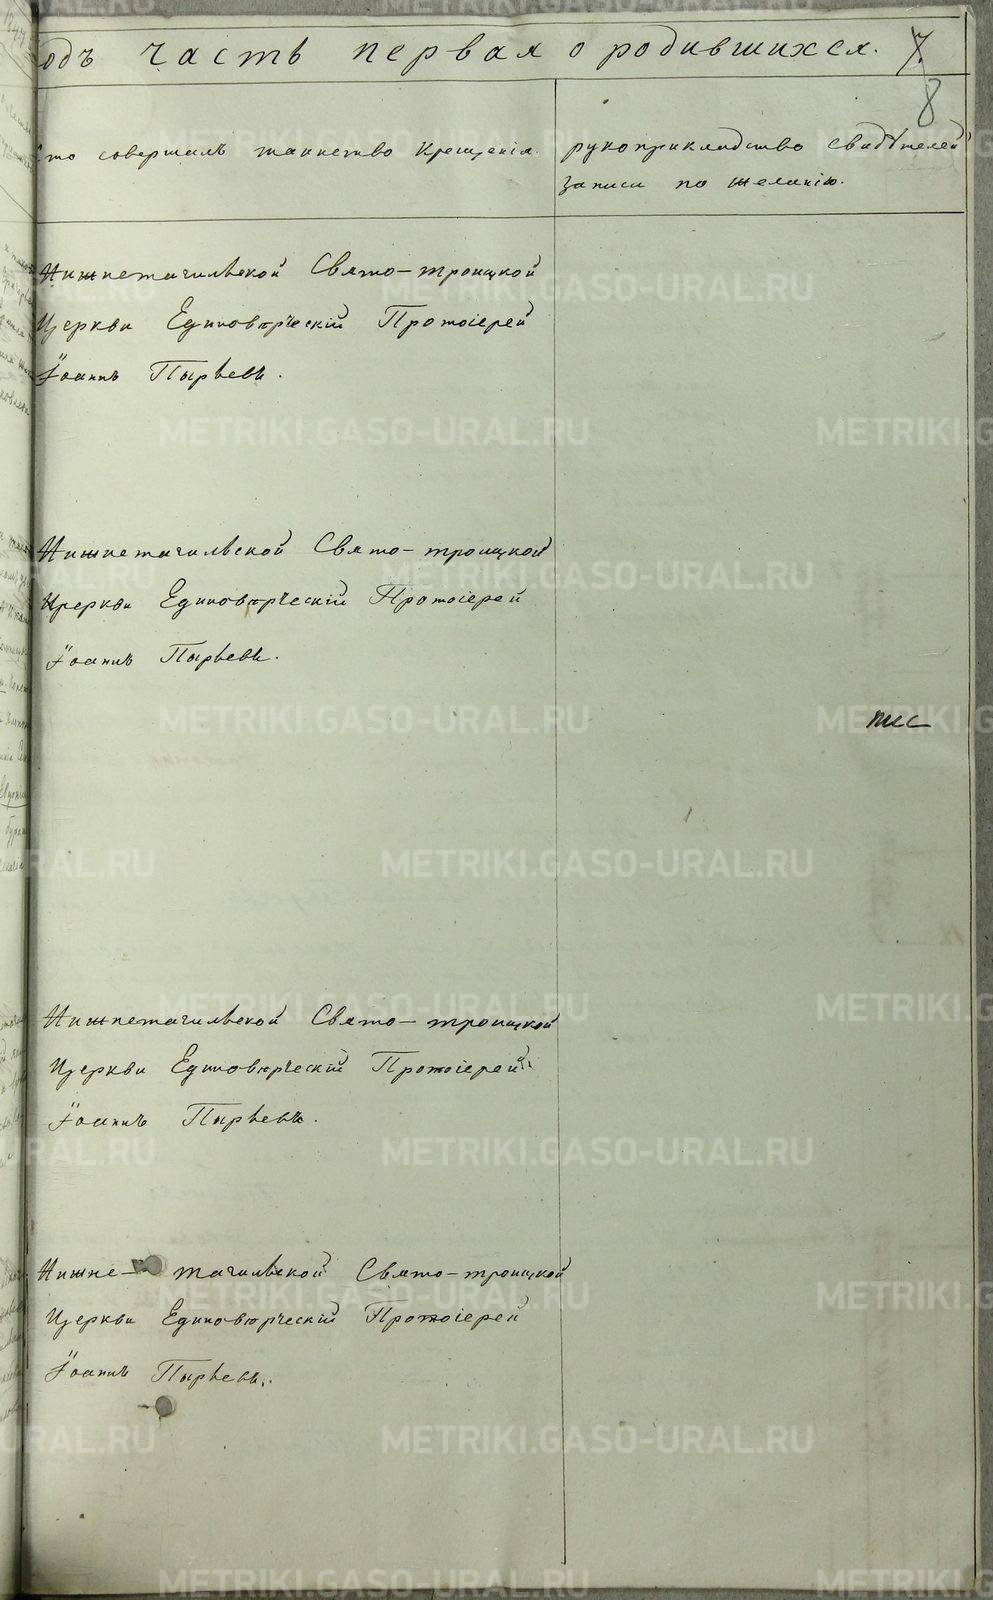 одъ часть первая о родившихся. 7
8
кто совершалъ таинство крещенія.
рукоприкладство свидѣтелей
записи по желанію.
Нижнетагильской Свято-троицкой
Церкви Единовѣрческій Протоіерей
Іоаннъ Пырьевъ.
Нижнетагильской Свято-троицкой
Церкви Единовѣрческій Протоіерей
Іоаннъ Пырьевъ.
Нижнетагильской Свято-троицкой
Церкви Единовѣрческій Протоіерей
Іоаннъ Пырьевъ.
Нижне-тагильской Свято-троицкой
Церкви Единовѣрческій Протоіерей
Іоаннъ Пырьевъ.
METRIKI.GASO-URAL.RU